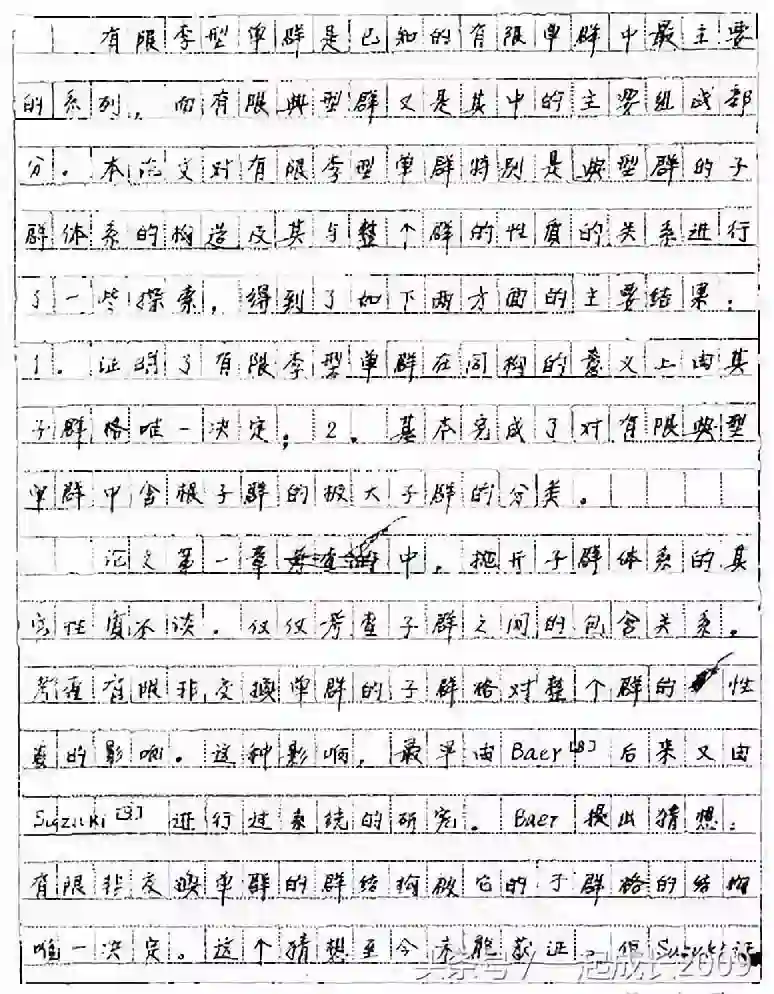 有限李型单群是已知的有限单群中最主要
的系列，而有限典型群又是其中的主要组成部
分。本论文对有限李型单群特别是典型群的子
群体系的构造及其与整个群的性质的关系进行
了一些探索，得到了如下两方面的主要结果：
1．证明了有限李型单群在同构的意义上由其
子群格唯一决定；2．基本完成了对有限典型
单群中含根子群的极大子群的分类。
论文第一章中，抛开子群体系的其
它性质不谈，仅仅考查子群之间的包含关系，
考查有限非交换单群的子群格对整个群的性
质的影响。这种影响，最早由Baer[8]后来又由
Suzuki[3]进行过系统的研究。Baer提出猜想：
有限非交换单群的群结构被它的子群格的结构
唯一决定。这个猜想至今未能获证。但Suzuki证
头条号/一起成长2009